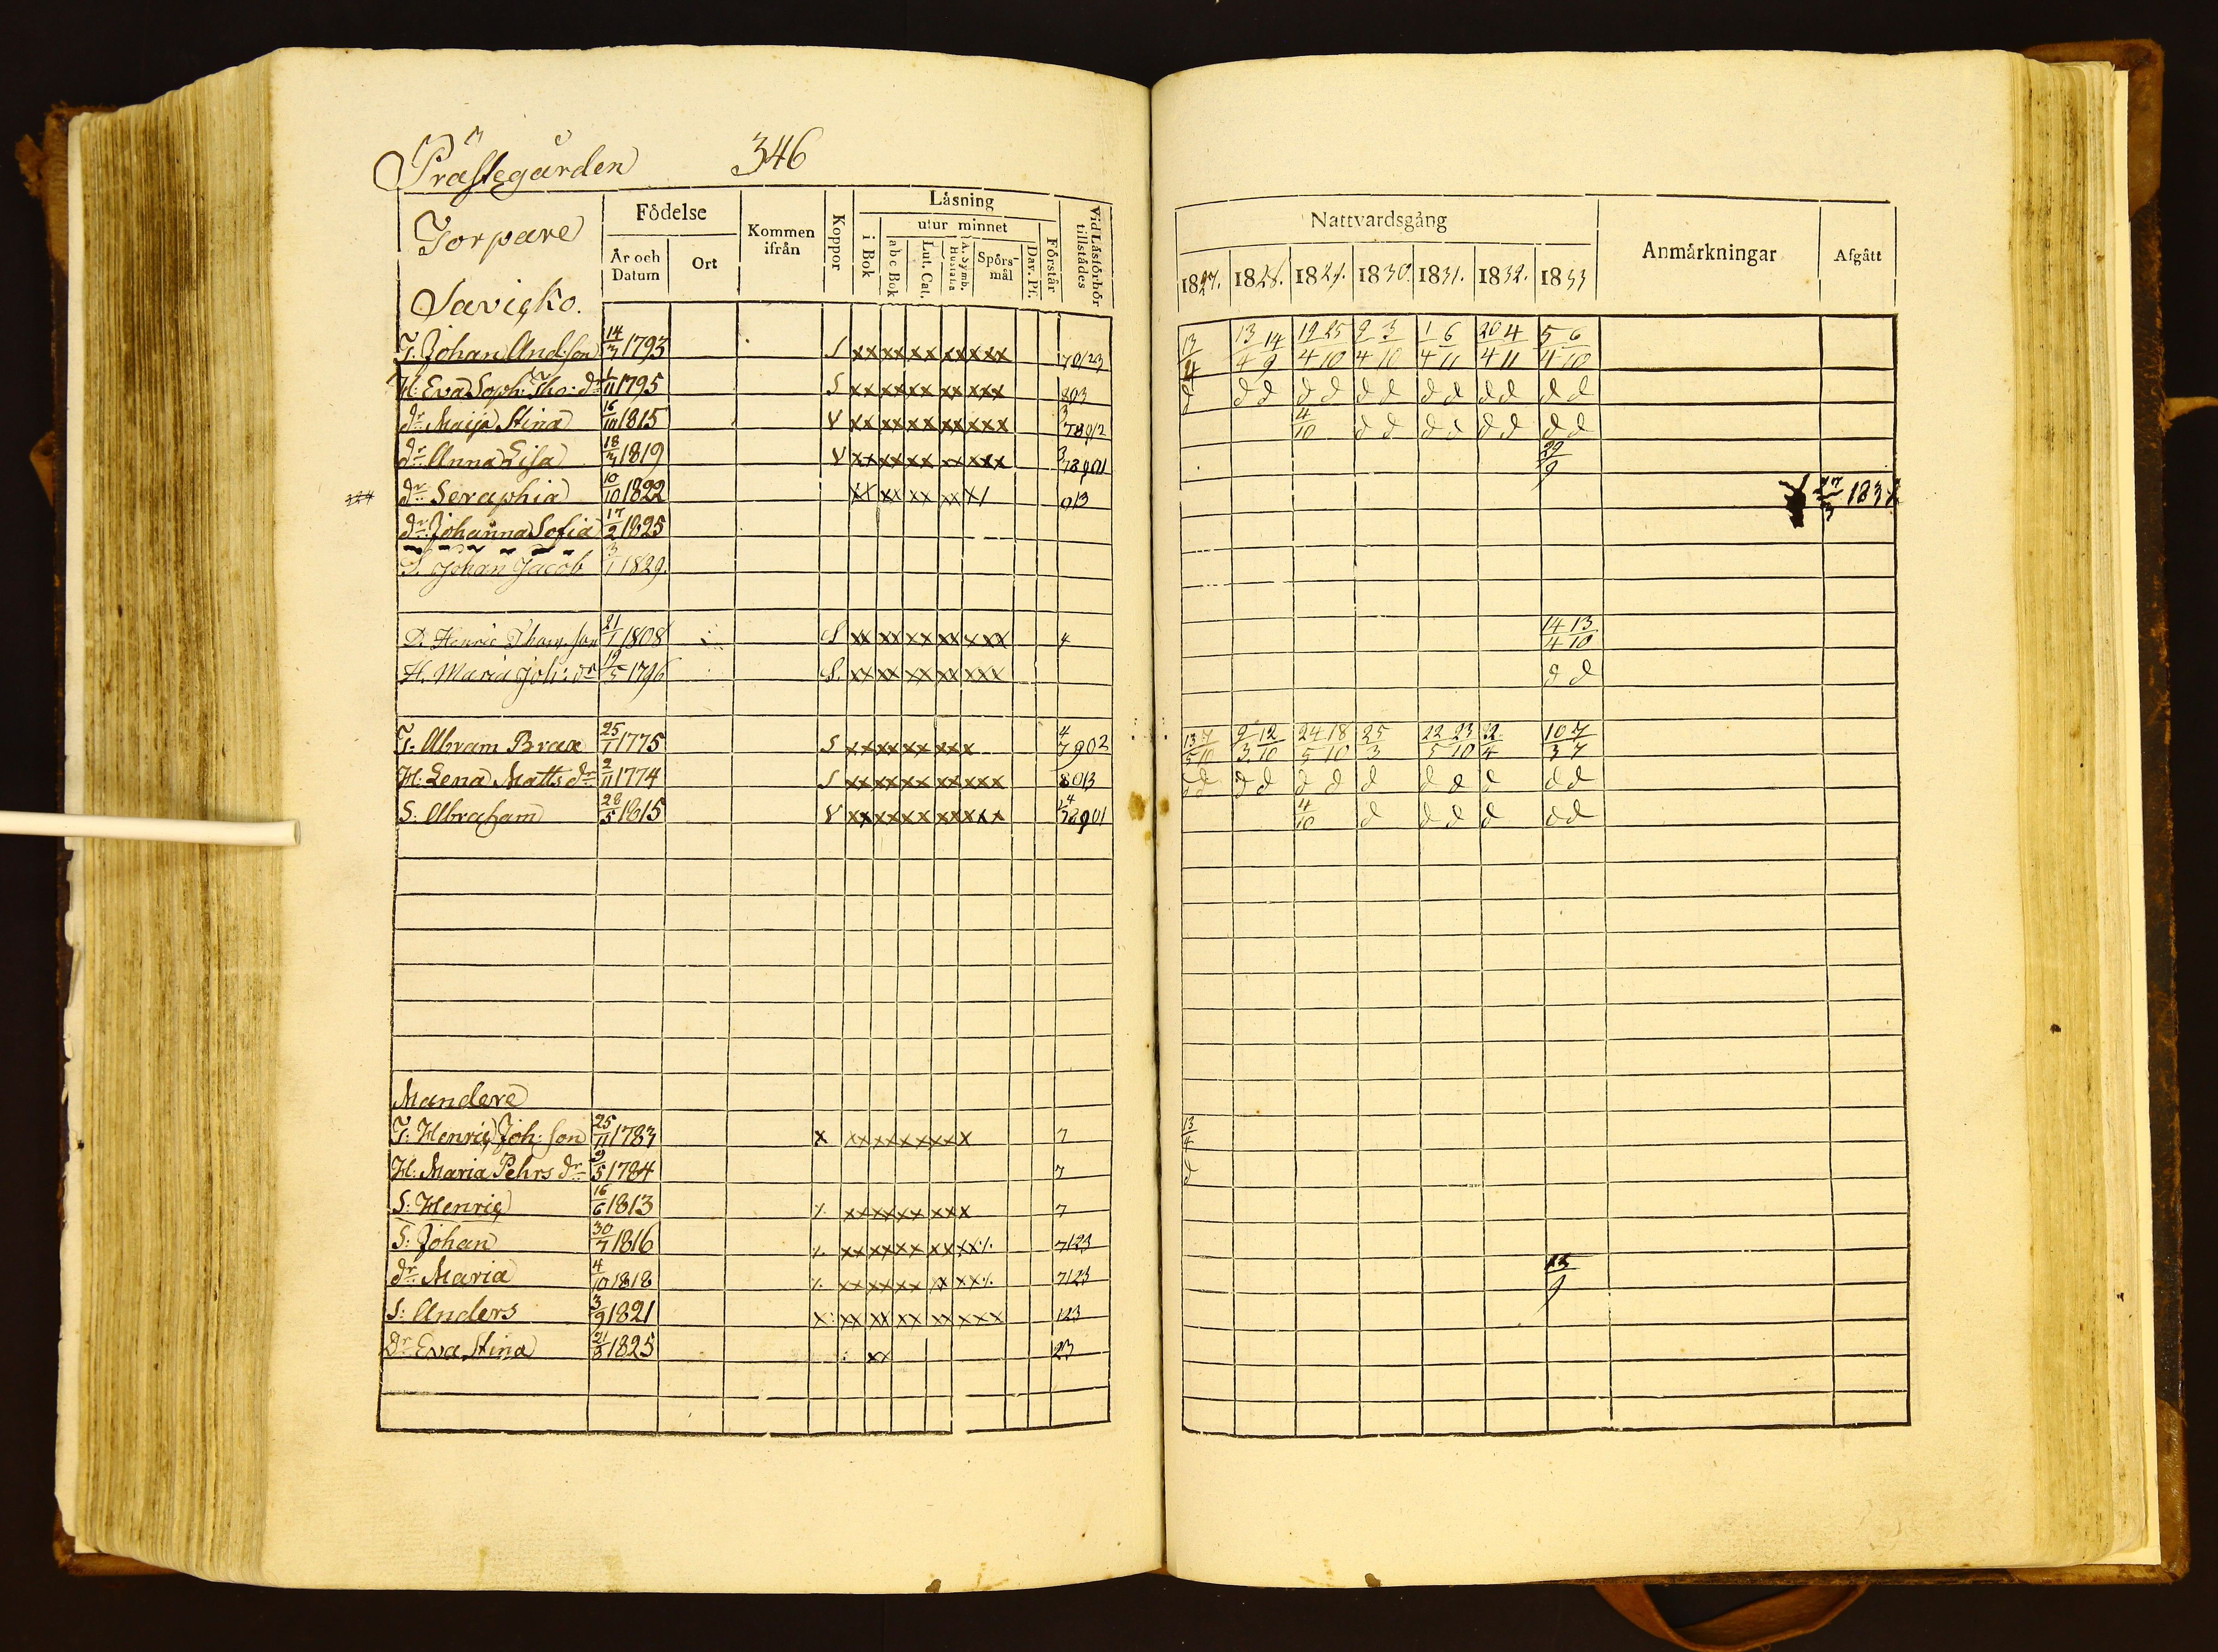 Prästegården 346
Torpare
Savicko.
Födelse
År och Datum
Ort
Kommen ifrån
Koppor
Läsning
i Bok
utur minnet
abc Bok
Lut. Cat.
A. Symb.
Hustafla
Spörs-mål
Dav. Ps.
Förstår
Vid Läsförhör tillstädes
Nattvardsgång
1827. 1828. 1829. 1830. 1831. 1832. 1833
Anmärkningar
Afgått
T. Johan And:son 14/3 1793 S xx xx xx xx xxx 70/23 13/4 13/4 14/9 19/4 25/10 9/4 3/10 1/4 6/11 20/4 4/11 5/4 6/10
H: Eva Soph: Tho: dr 1/11 1795 S xx xx xx xx xxx 803 d d d d d d d d d d d d d
dr Maija Stina 16/10 1815 V xx xx xx xx xxx 3 78912 4/10 d d d d d d d d
dr Anna Lisa 18/3 1819 V xx xx xx xx xxx 3 78901 29/9
324 dr Seraphia 10/10 1822 xx xx xx xx x/ 013 27/3 183
dr Johanna Sofia 17/2 1825
S. Johan Jacob 3/1 1829.
D. Henric Thom:son 21/1 1808 S xx xx xx xx xxx 4 14/4 13/10
H. Maria Joh: dr 19/5 1796 S. xx xx xx xx xxx d d
T: Abram Brax 25/1 1775 S xx xx xx xx x 4 7902 13/5 7/10 9/3 12/10 24/5 18/10 25/3 22/5 23/10 2/4 10/3 7/7
H: Lena Matts dr 2/11 1774 S xx xx xx xx xxx 8013 d d d d d d d d d d d d
S: Abraham 28/5 1815 V xx xx xx xx xxx 4 78901 4/10 d d d d d d
Mandere
T: Henric Joh: son 25/11 1783 x xx xx xx xx x 7 13/4
H: Maria Pehrs dr 9/5 1784 7 d
S: Henric 16/6 1813 ⁒ xx xx xx xx x 7
S: Johan 30/7 1816 ⁒ xx xx xx xx xx⁒ 7123
dr Maria 4/10 1818 ⁒ xx xx xx xx xx⁒ 7123
S: Anders 3/9 1821 x xx xx xx xx xxx 123
Dr Eva Stina 21/8 1825 xx 23